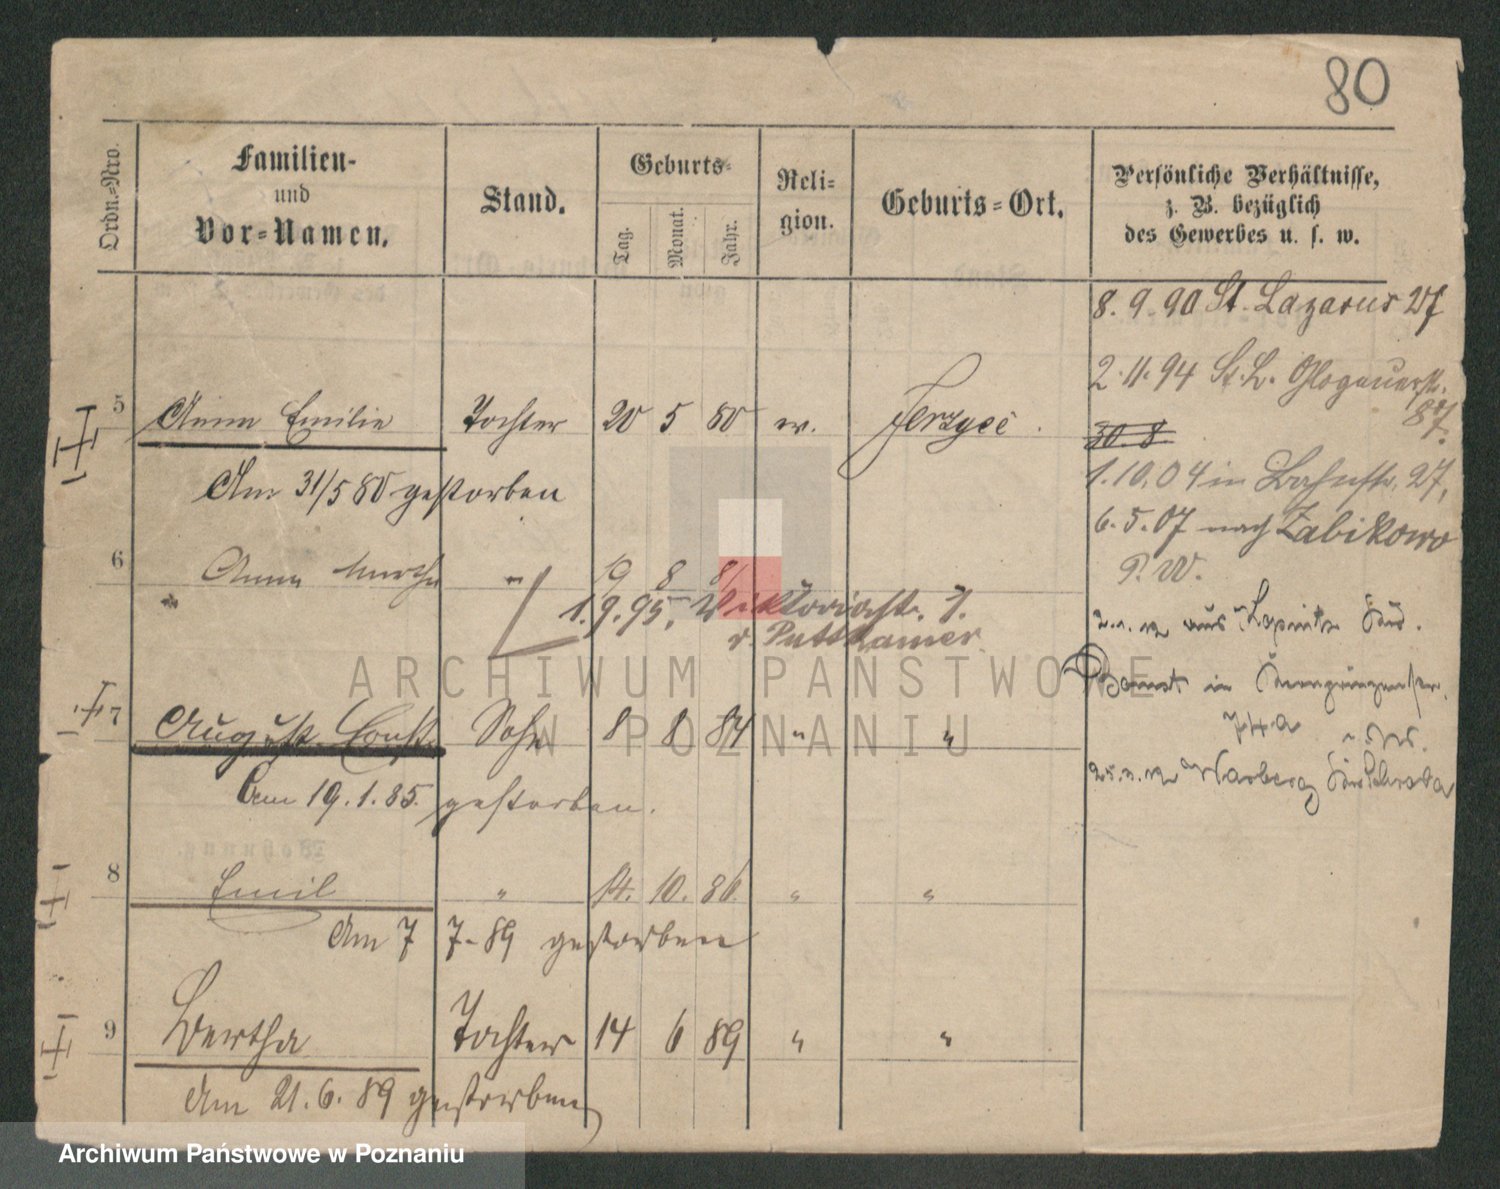 80
Ordn.-Nro.
Familien-
und
Vor-Namen.
Stand.
Geburts-
Tag.
Monat.
Jahr.
Reli-
gion.
Geburts-Ort.
Persönliche Verhältnisse,
z. B. bezüglich
des Gewerbes u. s. w.
8. 9. 90 St. Lazarus 27
2. 11. 94 St. L. Glogauerstr.
87.
5 Anna Emilie Tochter 20 5 80 ev. Jerzyce.
30 8
Am 31/5 80 gestorben
1. 10. 04 in Bahnstr. 27,
6. 5. 07 nach Zabikowo
P. W.
6 Anna Martha " 19 8 8
1. 9. 95, Viktoriastr. 7.
v. Puttkamer
2. 1. 12 aus
in
74a
7 August Sohn 8 8 84 " "
Am 19. 1. 85. gestorben.
8 Emil " 14. 10. 86. " "
Am 7 7-89 gestorben
9 Bertha Tochter 14 6 89 " "
Am 21. 6. 89 gestorben
ARCHIWUM PAŃSTWOWE
W POZNANIU
Archiwum Państwowe w Poznaniu